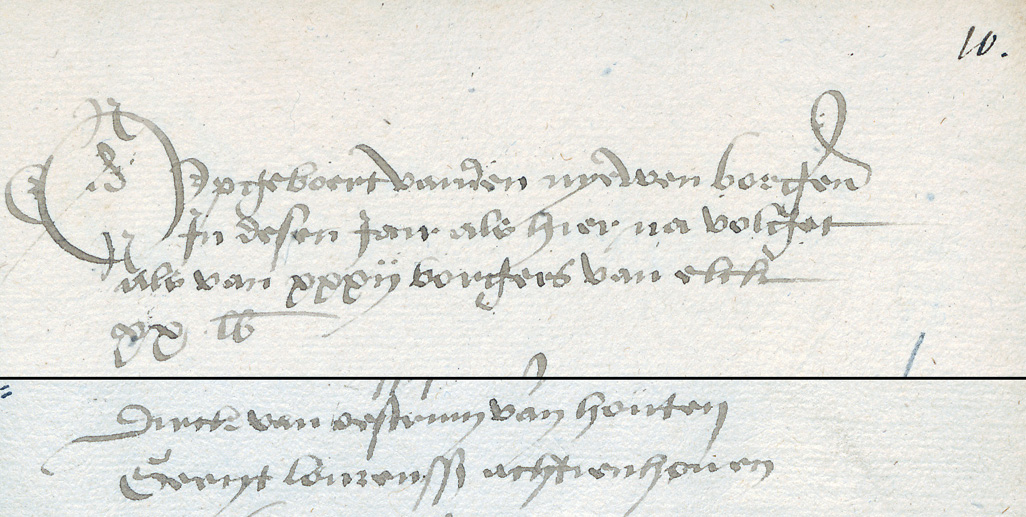 10.
Opgeboert vanden nyewen borgeren
In desen Jair als hier na volget
als van xxxij borgers van elck
xx lb
Dirck van oestrum van houten
Gerryt louwenss achttienhouen